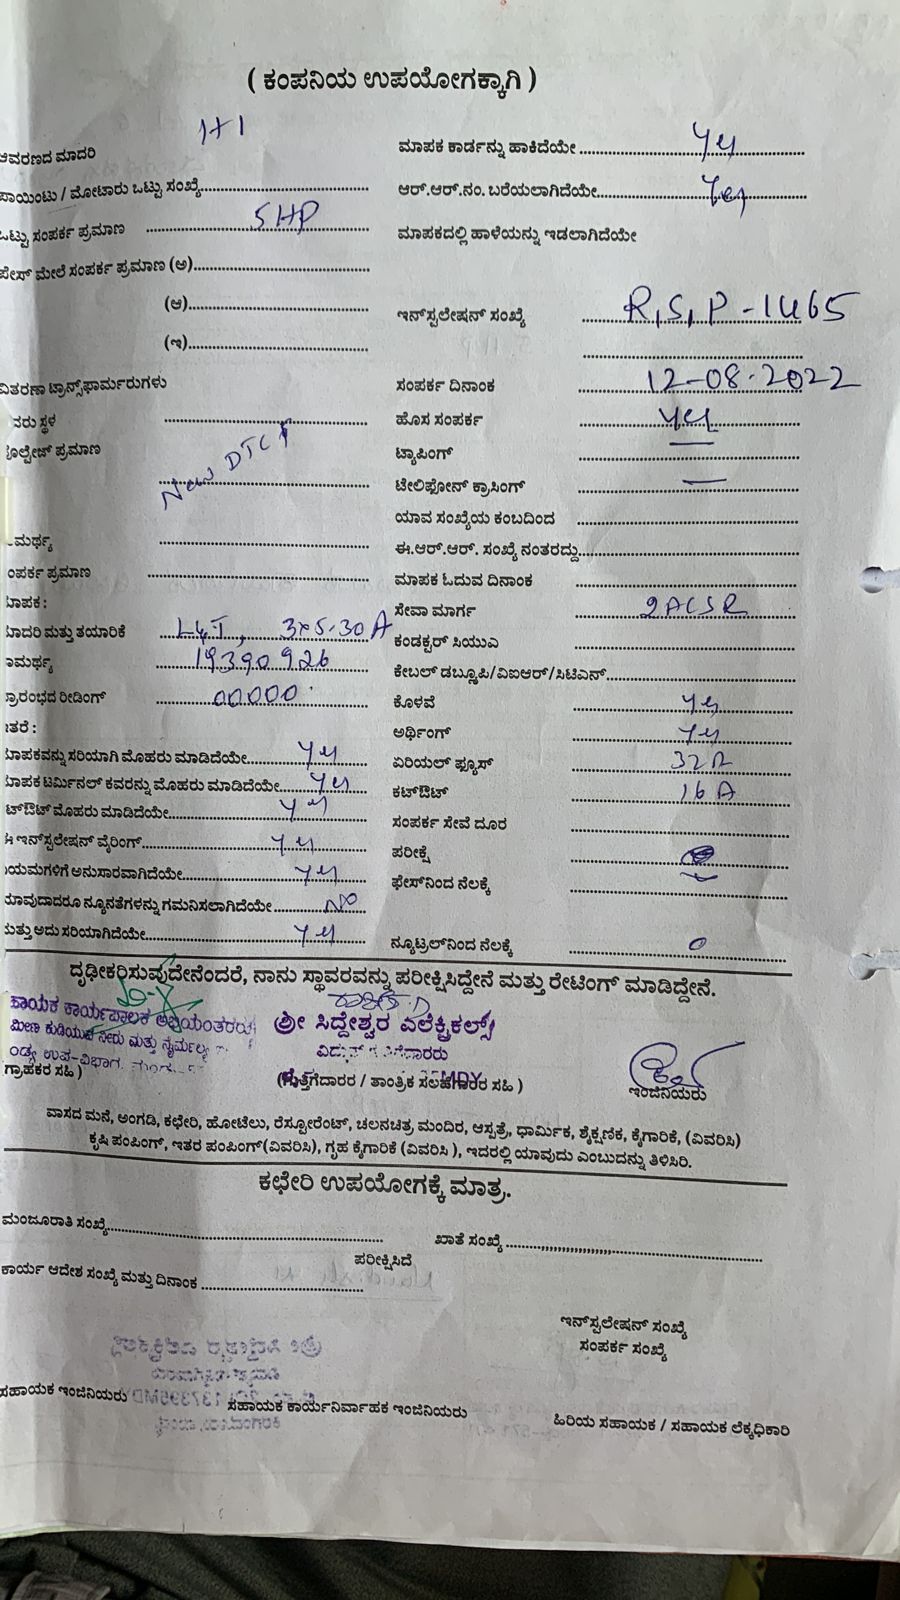 ( ಕಂಪನಿಯ ಉಪಯೋಗಕ್ಕಾಗಿ )
ಆವರಣದ ಮಾದರಿ 1+1
ಪಾಯಿಂಟು / ಮೋಟಾರು ಒಟ್ಟು ಸಂಖ್ಯೆ
ಒಟ್ಟು ಸಂಪರ್ಕ ಪ್ರಮಾಣ 5HP
ಪೇಸ್ ಮೇಲೆ ಸಂಪರ್ಕ ಪ್ರಮಾಣ (ಅ)
(ಆ)
(ಇ)
ವಿತರಣಾ ಟ್ರಾನ್ಸ್‌ಫಾರ್ಮರುಗಳು
ಸ್ಥಳ
ಪ್ರಮಾಣ
New DTC
ಪ್ರಮಾಣ
ಮಾದರಿ ಮತ್ತು ತಯಾರಿಕೆ L&T, 3x5-30A
19390926
ರೀಡಿಂಗ್ 00000
ಮಾಪಕವನ್ನು ಸರಿಯಾಗಿ ಮೊಹರು ಮಾಡಿದೆಯೇ Yes
ಮಾಪಕ ಟರ್ಮಿನಲ್ ಕವರನ್ನು ಮೊಹರು ಮಾಡಿದೆಯೇ Yes
ಮೊಹರು ಮಾಡಿದೆಯೇ Yes
ಈ ಇನ್‌ಸ್ಟಲೇಷನ್ ವೈರಿಂಗ್ Yes
ಅನುಸಾರವಾಗಿದೆಯೇ Yes
ಯಾವುದಾದರೂ ನ್ಯೂನತೆಗಳನ್ನು ಗಮನಿಸಲಾಗಿದೆಯೇ No
ಮತ್ತು ಅದು ಸರಿಯಾಗಿದೆಯೇ Yes
ಮಾಪಕ ಕಾರ್ಡನ್ನು ಹಾಕಿದೆಯೇ Yes
ಆರ್.ಆರ್.ನಂ. ಬರೆಯಲಾಗಿದೆಯೇ Yes
ಮಾಪಕದಲ್ಲಿ ಹಾಳೆಯನ್ನು ಇಡಲಾಗಿದೆಯೇ
ಇನ್‌ಸ್ಪಲೇಷನ್ ಸಂಖ್ಯೆ R,S,P-1465
ಸಂಪರ್ಕ ದಿನಾಂಕ 12-08-2022
ಹೊಸ ಸಂಪರ್ಕ Yes
ಟ್ಯಾಪಿಂಗ್ —
ಟೇಲಿಫೋನ್ ಕ್ರಾಸಿಂಗ್ —
ಯಾವ ಸಂಖ್ಯೆಯ ಕಂಬದಿಂದ
ಈ.ಆರ್.ಆರ್. ಸಂಖ್ಯೆ ನಂತರದ್ದು
ಮಾಪಕ ಓದುವ ದಿನಾಂಕ
ಸೇವಾ ಮಾರ್ಗ 2ACSR
ಕಂಡಕ್ಟರ್ ಸಿಯುಎ
ಕೇಬಲ್ ಡಬ್ಲ್ಯೂಪಿ/ವಿಐಆರ್/ಸಿಟಿಎನ್
ಕೊಳವೆ Yes
ಅರ್ಥಿಂಗ್ Yes
ಏರಿಯಲ್ ಫ್ಯೂಸ್ 32A
ಕಟ್‌ಔಟ್ 16A
ಸಂಪರ್ಕ ಸೇವೆ ದೂರ
ಪರೀಕ್ಷೆ
ಫೇಸ್‌ನಿಂದ ನೆಲಕ್ಕೆ
ನ್ಯೂಟ್ರಲ್‌ನಿಂದ ನೆಲಕ್ಕೆ 0
ದೃಢೀಕರಿಸುವುದೇನೆಂದರೆ, ನಾನು ಸ್ಥಾವರವನ್ನು ಪರೀಕ್ಷಿಸಿದ್ದೇನೆ ಮತ್ತು ರೇಟಿಂಗ್ ಮಾಡಿದ್ದೇನೆ.
ಸಹಾಯಕ ಕಾರ್ಯಪಾಲಕ ಅಭಿಯಂತರರು
ಕುಡಿಯುವ ನೀರು ಮತ್ತು ನೈರ್ಮಲ್ಯ
ಉಪ-ವಿಭಾಗ
ಗ್ರಾಹಕರ ಸಹಿ )
ಶ್ರೀ ಸಿದ್ದೇಶ್ವರ ಎಲೆಕ್ಟ್ರಿಕಲ್ಸ್
ವಿದ್ಯುತ್ ಗುತ್ತಿಗೆದಾರರು
(ಗುತ್ತಿಗೆದಾರರ / ತಾಂತ್ರಿಕ ಸಲಹೆಗಾರರ ಸಹಿ )
ಇಂಜಿನಿಯರು
ವಾಸದ ಮನೆ, ಅಂಗಡಿ, ಕಛೇರಿ, ಹೋಟೆಲು, ರೆಸ್ಪೋರೆಂಟ್, ಚಲನಚಿತ್ರ ಮಂದಿರ, ಆಸ್ಪತ್ರೆ, ಧಾರ್ಮಿಕ, ಶೈಕ್ಷಣಿಕ, ಕೈಗಾರಿಕೆ, (ವಿವರಿಸಿ)
ಕೃಷಿ ಪಂಪಿಂಗ್, ಇತರ ಪಂಪಿಂಗ್ (ವಿವರಿಸಿ), ಗೃಹ ಕೈಗಾರಿಕೆ (ವಿವರಿಸಿ ), ಇದರಲ್ಲಿ ಯಾವುದು ಎಂಬುದನ್ನು ತಿಳಿಸಿರಿ.
ಕಛೇರಿ ಉಪಯೋಗಕ್ಕೆ ಮಾತ್ರ.
ಮಂಜೂರಾತಿ ಸಂಖ್ಯೆ
ಖಾತೆ ಸಂಖ್ಯೆ
ಪರೀಕ್ಷಿಸಿದೆ
ಕಾರ್ಯ ಆದೇಶ ಸಂಖ್ಯೆ ಮತ್ತು ದಿನಾಂಕ
ಇನ್‌ಸ್ಪಲೇಷನ್ ಸಂಖ್ಯೆ
ಸಂಪರ್ಕ ಸಂಖ್ಯೆ
ಸಹಾಯಕ ಇಂಜಿನಿಯರು
ಸಹಾಯಕ ಕಾರ್ಯನಿರ್ವಾಹಕ ಇಂಜಿನಿಯರು
ಹಿರಿಯ ಸಹಾಯಕ / ಸಹಾಯಕ ಲೆಕ್ಕಧಿಕಾರಿ